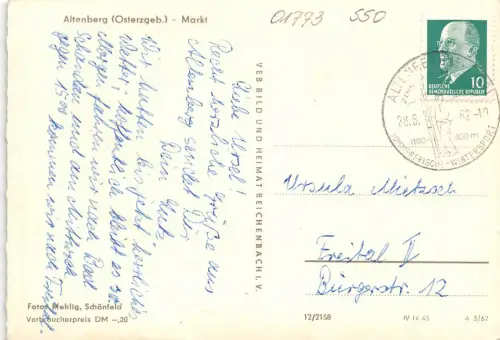 Altenberg (Osterzgeb.) – Markt
01773 SSO
Liebe Ursel!
Recht herzliche Grüße aus
Altenberg sendet Dir
Dein
Wir hatten bis jetzt herrliches
Wetter, hoffentlich bleibt es so.
Morgen fahren wir nach Bad
Schandau und am Mittwoch
gegen 15 Uhr kommen wir nach Freital.
VEB BILD UND HEIMAT REICHENBACH I. V.
10
DEUTSCHE
DEMOKRATISCHE REPUBLIK
62-19
SOMMERFRISCHE - WINTERSPORT
Ursula Mietzsch
Freital II
Bürgerstr. 12
Foto: Mehlig, Schönfeld
Verbraucherpreis DM –,20
12/2158
IV 14 45
A 3/62